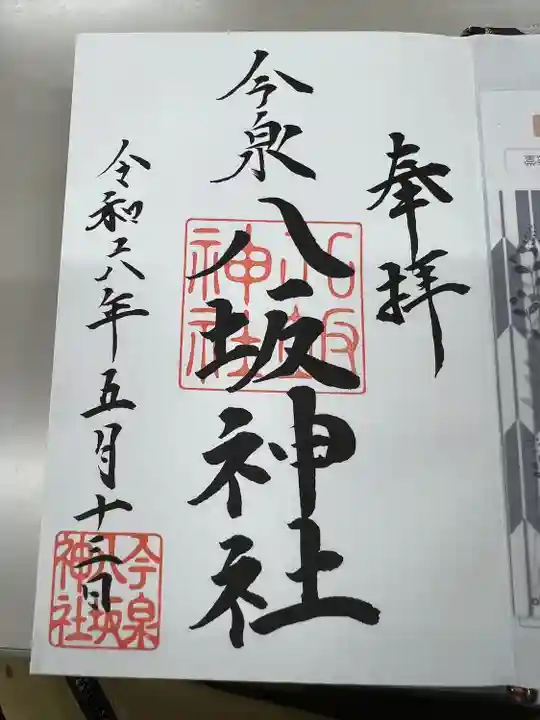 奉拝
今泉
八坂神社
八坂
神社
令和六年五月十三日
今泉
八坂
神社